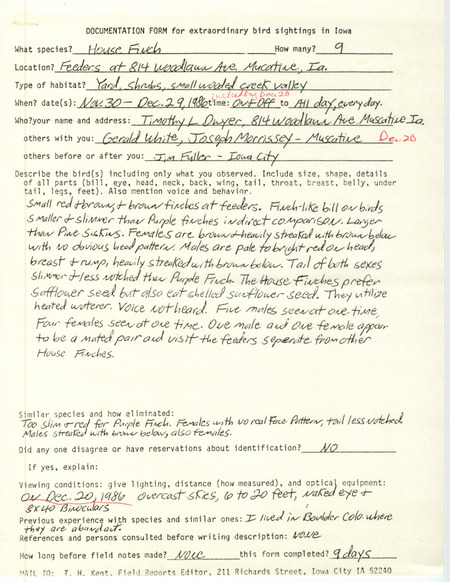 DOCUMENTATION FORM for extraordinary bird sightings in Iowa
What species? House Finch How many? 9
Location? Feeders at 814 Woodlawn Ave. Muscatine, Ia.
Type of habitat? Yard, shrubs, small wooded creek valley
including Dec. 20
When? date(s): Nov 30 - Dec. 29, 1986 time: On + Off to All day, everyday.
Who? your name and address: Timothy L. Dwyer, 814 Woodlawn Ave Muscatine Ia.
others with you: Gerald White, Joseph Morrissey - Muscatine Dec. 20
others before or after you: Jim Fuller - Iowa City
Describe the bird(s) including only what you observed. Include size, shape, details
of all parts (bill, eye, head, neck, back, wing, tail, throat, breast, belly, under
tail, legs, feet). Also mention voice and behavior.
Small red + brown, + brown finches at feeders. Finch-like bill on birds
smaller + slimmer than Purple finches in direct comparison. Larger
than Pine Siskins. Females are brown + heavily streaked with brown below
with no obvious head pattern. Males are pale to bright red on head,
breast + rump, heavily streaked with brown below. Tail of both sexes
slimmer + less notched than Purple Finch. The House Finches prefer
safflower seed but also eat shelled sunflower seed. They utilize
heated waterer. Voice not heard. Five males seen at one time,
Four females seen at one time. One male and one female appear
to be a mated pair and visit the feeders seperate from other
House Finches.
Similar species and how eliminated:
Too slim + red for Purple Finch. Females with no real Face Pattern, tail less notched.
Males streaked with brown below, also females.
Did any one disagree or have reservations about identification? NO
If yes, explain:
Viewing conditions: give lighting, distance (how measured), and optical equipment:
On Dec. 20, 1986 overcast skies, 6 to 20 feet, naked eye +
8x40 Binoculars
Previous experience with species and similar ones: I lived in Boulder Colo. where
they are abundant.
References and persons consulted before writing description: none
How long before field notes made? none this form completed? 9 days
MAIL TO: T. H. Kent, Field Reports Editor, 211 Richards Street, Iowa City IA 52240